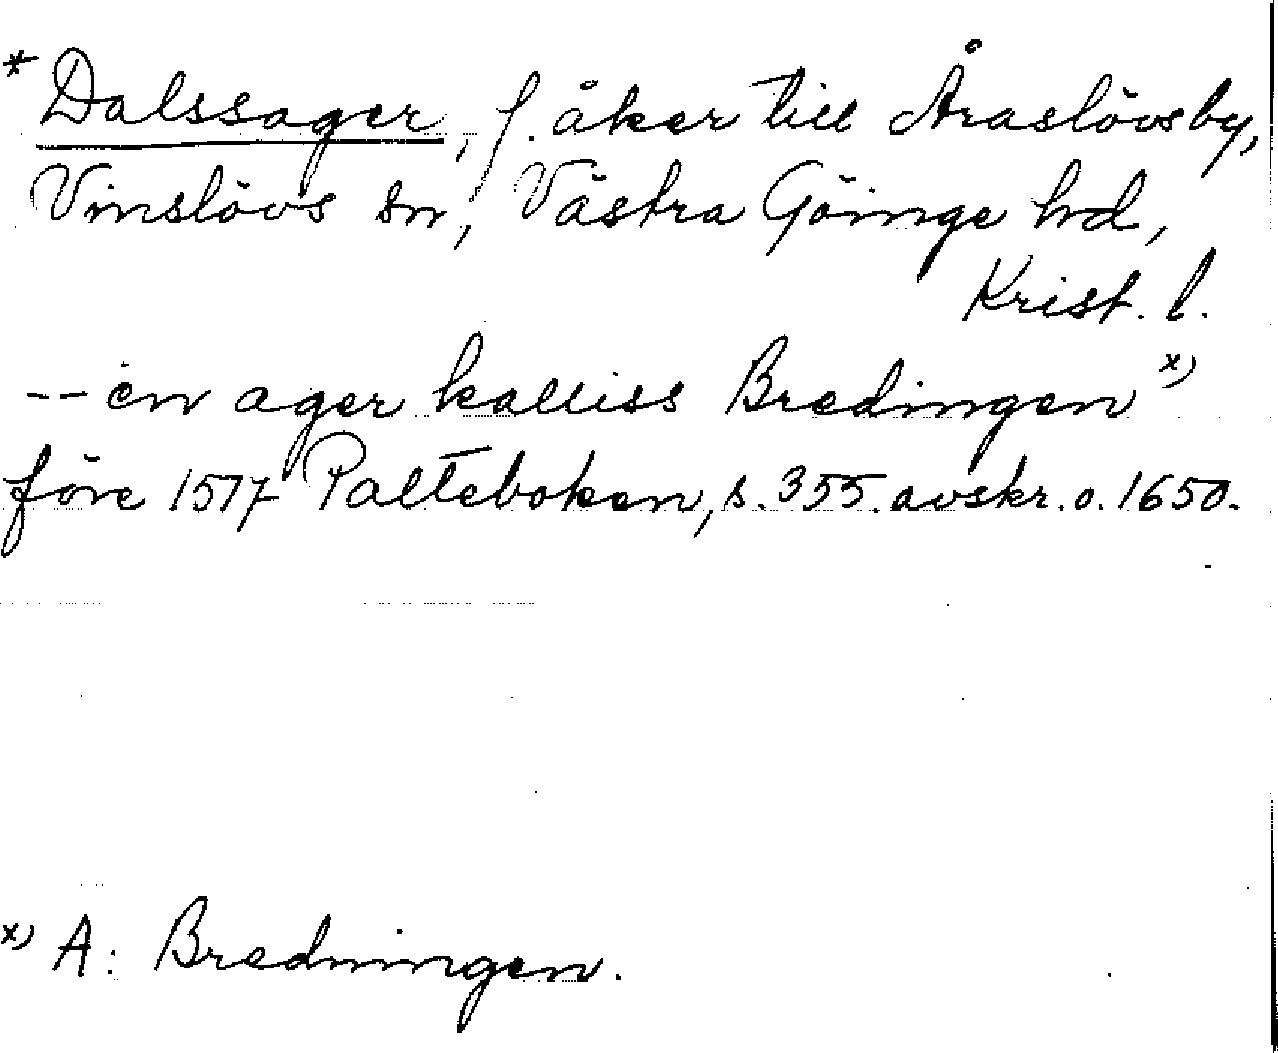 * Dalssager, f. åker till Åraslövsby,
Vinslövs sn, Västra Göinge hd,
Krist. l.
-- en ager kalliss Bredingen x)
före 1517 Palteboken, s. 355. avskr. o. 1650.
x) A: Bredningen.